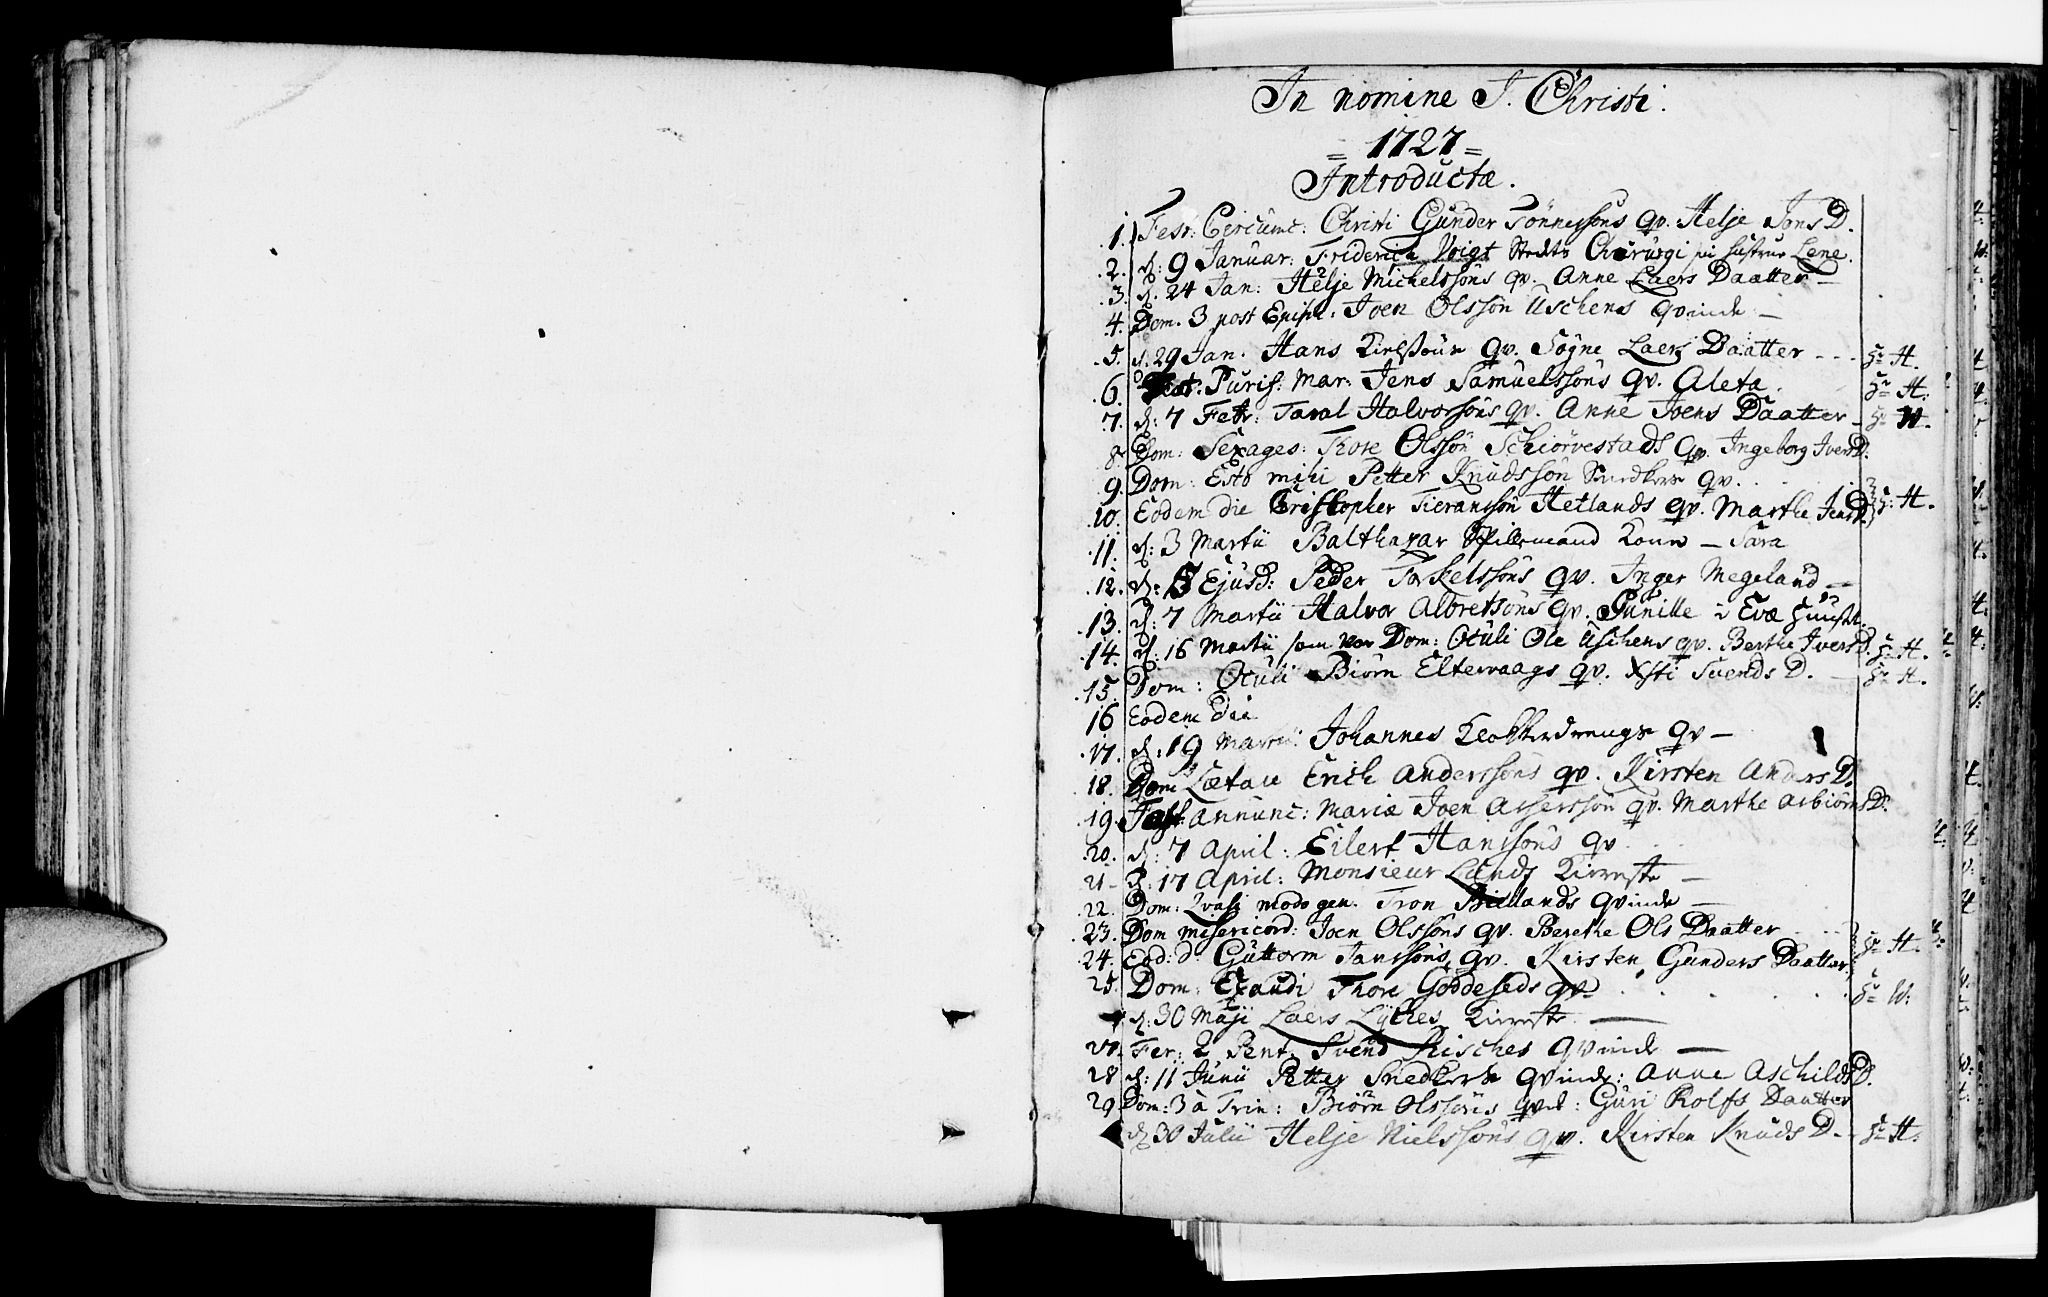 In nomine J. Christi.
= 1727 =
Introductæ.
1. Fest: Circumc: Christi Gunder Tönnessöns qv. Helje Jons D.
2. d: 9 Januar: Friderich Voigt Stedts Chirurgi sin hustrue Lene.
3. d. 24 Jan: Helje Michelssöns qv. Anne Laers Daatter —
4. Dom. 3 post Epiph: Joen Olssön Uschens qvinde —
5. d. 29 Jan. Hans qv. Sögne Laers Daatter - - - Hr H.
6. Fest. Purif: Mar: Jens Samuelssöns qv. Aleta. Hr H:
7. d: 7 Febr: Taral Halvorssöns qv. Anne Joens Daatter - Hr W.
8. Dom: Sexages: Thore Olssön Schiörvestads qv. Ingeborg Ivers D.
9. Dom: Esto mihi Petter Knudssön Snedkers qv.
10. Eodem die Cristopher Hetlands qv. Marthe Jens D. Hr: H.
11. d: 3 Martii Balthazar Spillemand Kone — Sara
12. d: 5 Ejusd: Peder Torkelssöns qv. Inger Megeland —
13. d: 7 Martii Halvor Albretsöns qv. Gunille i Evæ
14. d: 16 Martii som var Dom: Oculi Ole Uschens qv. Berthe Ivers D. Hr H.
15. Dom: Oculi Biörn Eltervaags qv. Xsti Svends D. — Hr H.
16 Eodem die
17. d: 19 Martii: Johannes Klokkerdrengs qv —
18. Dom Lætare Erich Anderssöns qv. Kirsten Anders D.
19. Fest: Annunc: Mariæ Joen Asserssön qv. Marthe Asbiörns D.
20. d: 7 April: Eilert Hanssöns qv.
21 - d: 17 April: Monsieur Lunds Kierreste —
22. Dom: Qvasi modo gen. Tron Biellands qvinde —
23. Dom Misericord: Joen Olssöns qv. Berethe Ols Daatter
24. Eod: d: Guttorm Janssöns qv. Kirsten Gunders Daatter Hr H.
25. Dom: Exaudi Thore Goddeseds qv. Hr W:
d: 30 Maji Laers Lyches Kierreste —
27. Fer: 2 Pent. Svend Risches qvinde —
28 d: 11 Junii Petter Snedkers qvinde: Anne Aschilds D.
29 Dom: 3 à Trin: Biörn Olssöns qvd: Guri Rolfs Daatter
d 30 Julii Helje Nielssöns qv. Kirsten Knuds D. - Hr H: